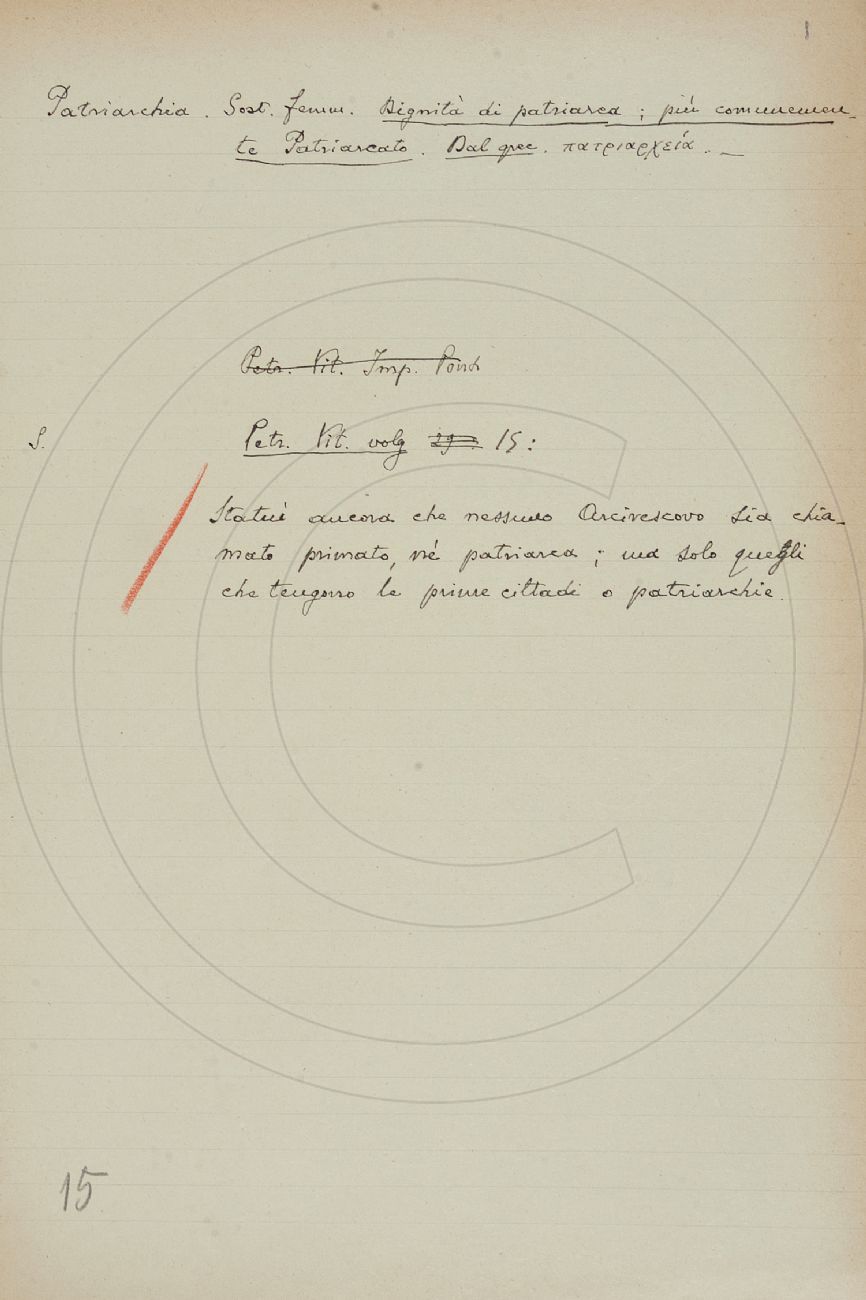 1
Patriarchia. Sost. femm. Dignità di patriarca; più comunemen-
te Patriarcato. Dal grec. πατριαρχεία. —
Petr. Vit. Imp. Pont
S. Petr. Vit. volg 29. 15:
Statuì ancora che nessuno Arcivescovo sia chia-
mato primato, nè patriarca; ma solo quegli
che tengono le prime cittadi o patriarchie.
15